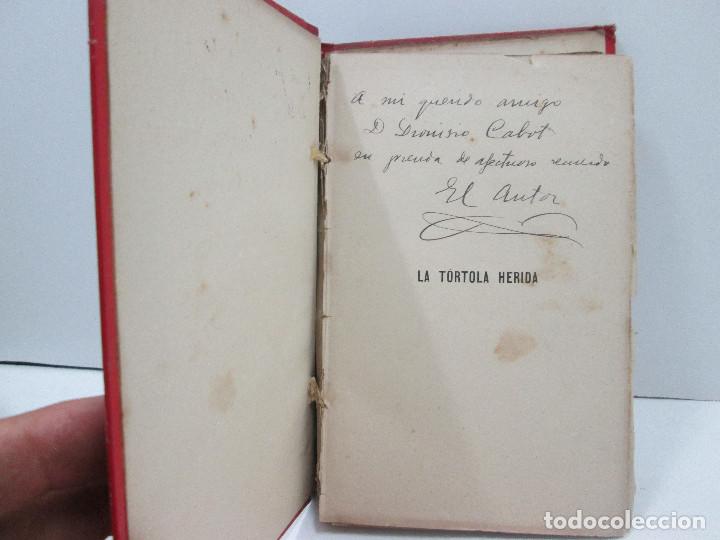 A mi querido amigo
D Dionisio Cabot
en prenda de afectuoso recuerdo
El Autor
LA TÓRTOLA HERIDA
todocoleccion